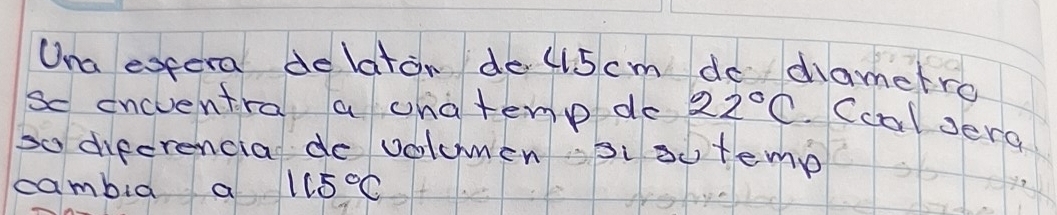 Una esfera de latón de 45cm de diametro
se encuentra a una temp de 22°C. Cual sera
su diferencia de volumen si su temp
cambia a 115°C